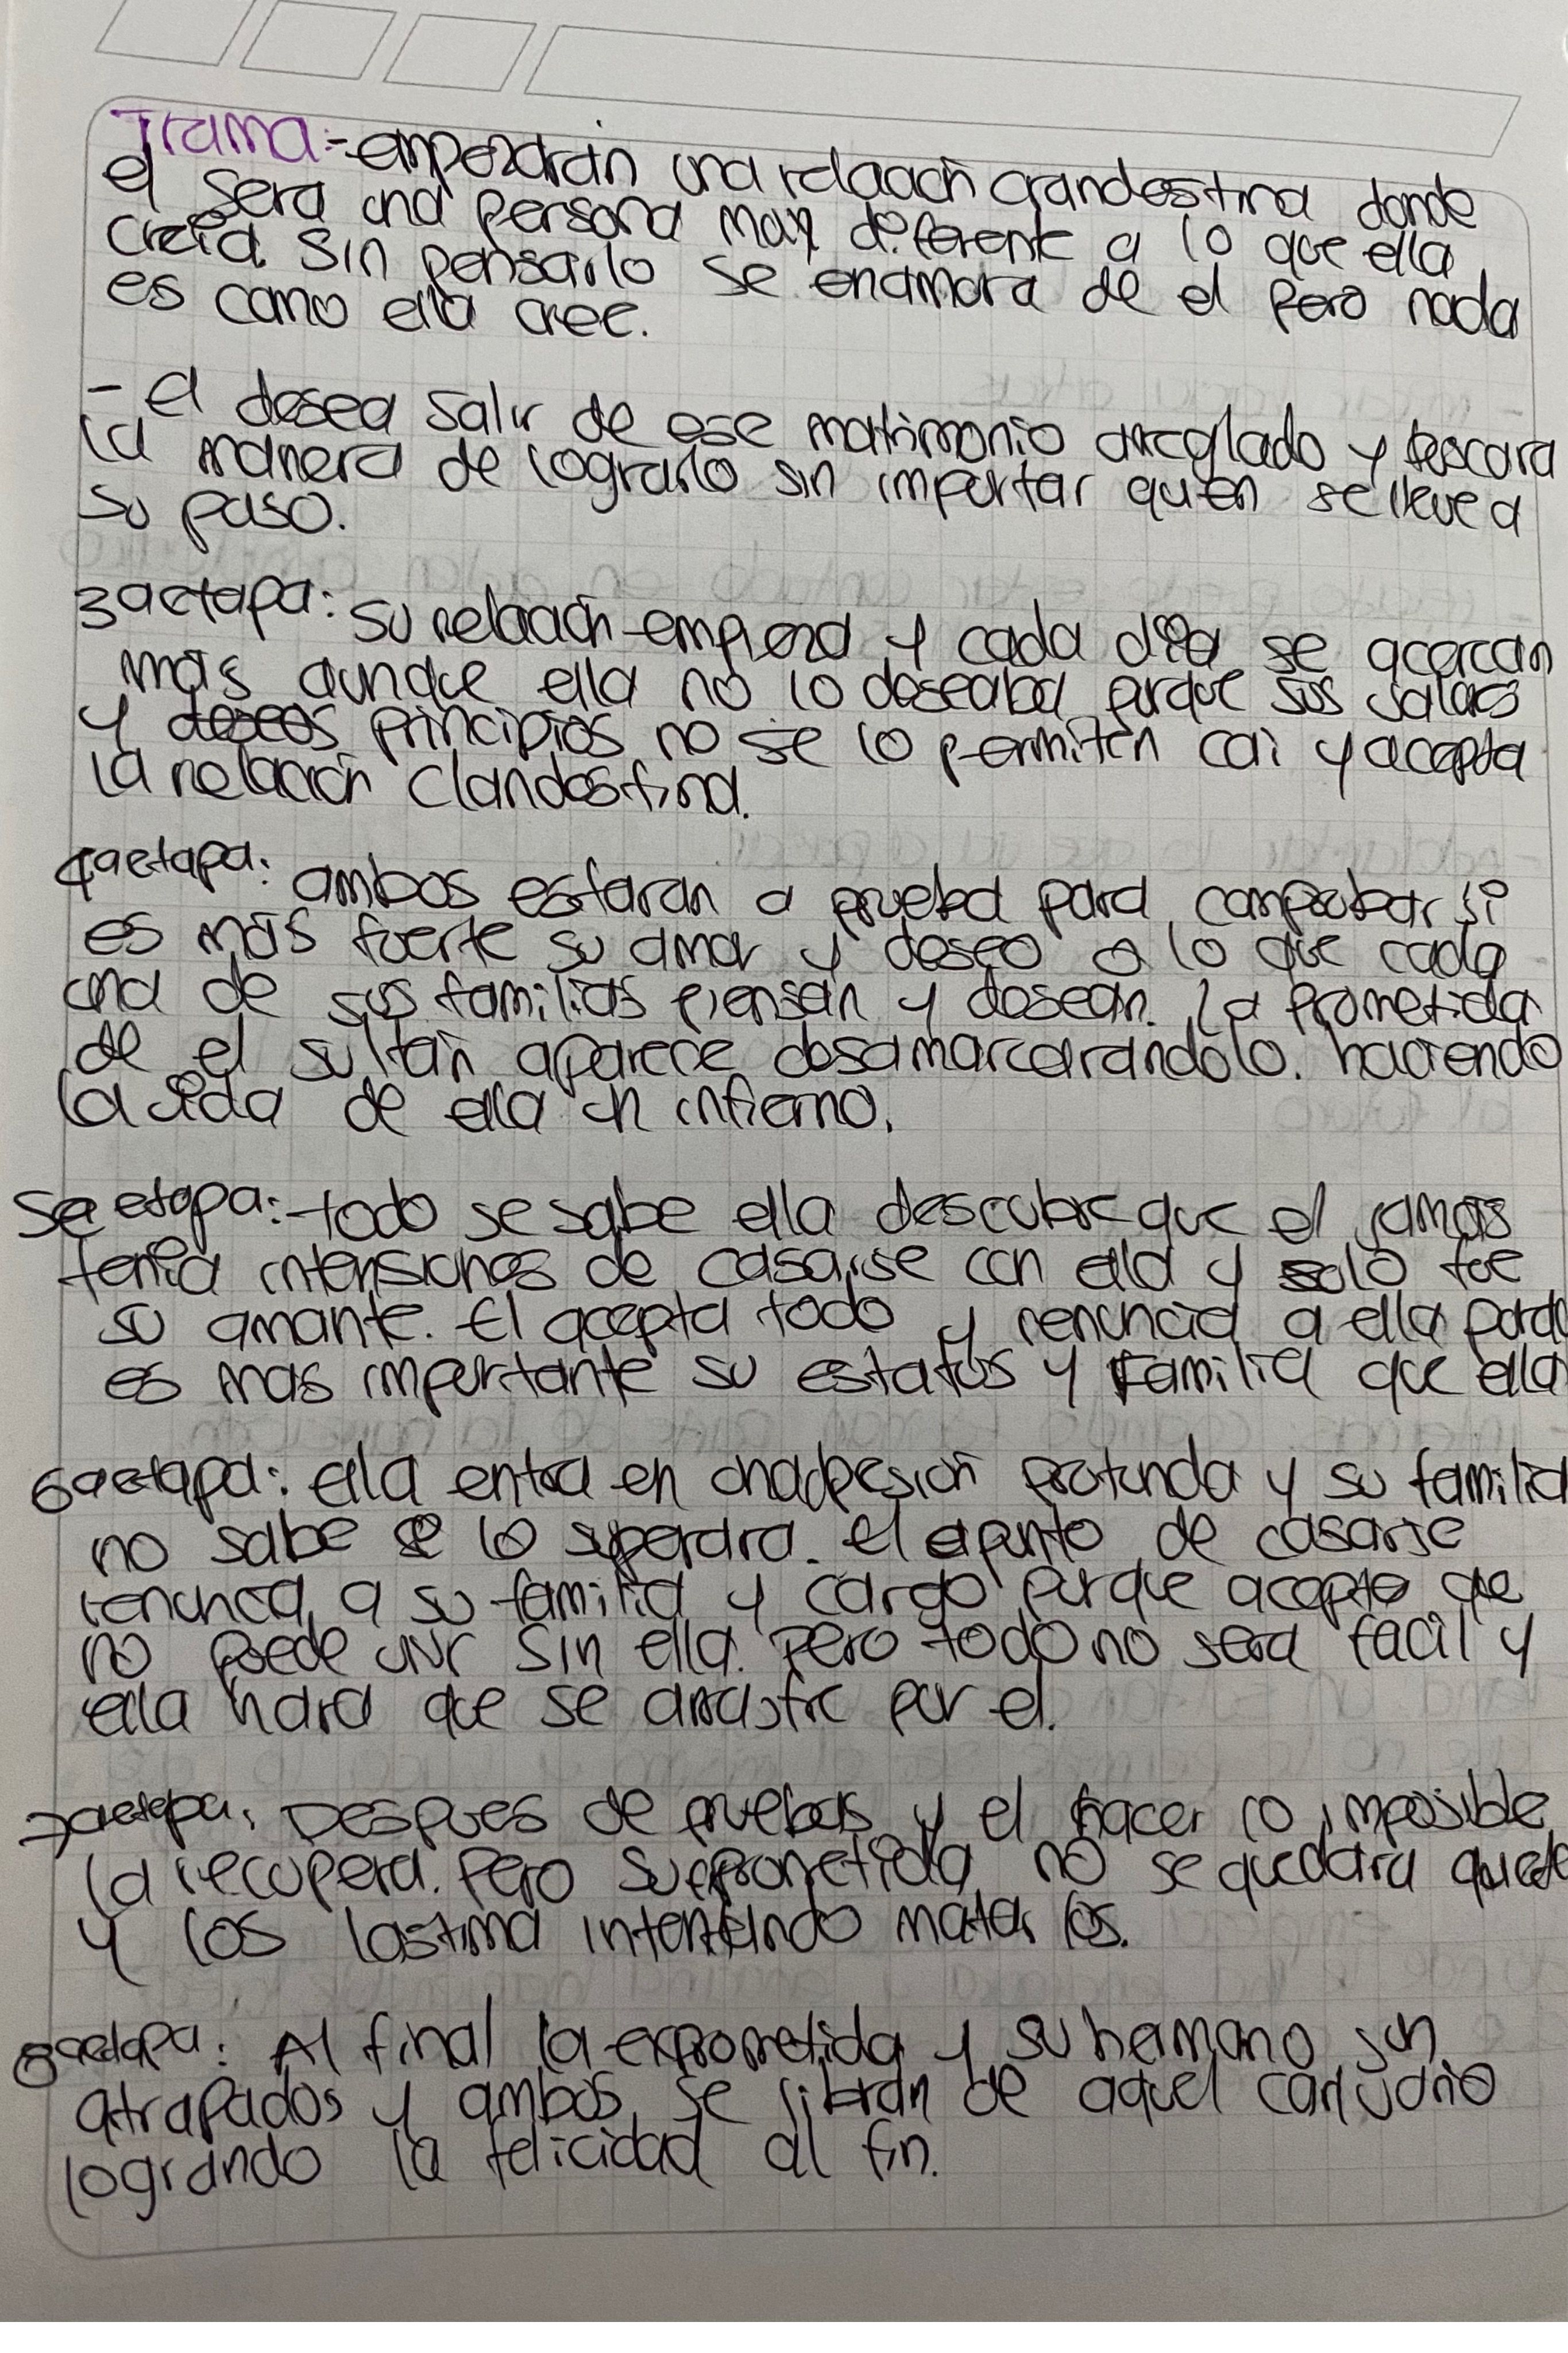 Trama:- empezarán una relación clandestina donde
el sera una persona muy diferente a lo que ella
creía. sin pensarlo se enamora de el pero nada
es como ella cree.
- el desea salir de ese matrimonio arreglado y buscara
la manera de lograrlo sin importar quien se lleve a
su paso.
3a etapa: su relación empieza y cada día se acercan
más aunque ella no lo deseaba porque sus valores
y deseos principios no se lo permiten cai y acepta
la relación clandestina.
4a etapa: ambos estaran a prueba para comprobar si
es más fuerte su amor y deseo o lo que cada
una de sus familias piensan y desean. La prometida
de el sultán aparece haciendo
la vida de ella un infierno.
5a etapa: todo se sabe ella descubre que el jamás
tenía intensiones de casarse con ella y solo fue
su amante. El acepta todo y renuncia a ella para
es mas importante su estatus y familia que ella
6a etapa: ella entra en una profunda y su familia
no sabe si lo superara. el a punto de casarse
renuncia a su familia y cargo porque acepta que
no puede vivir sin ella. Pero todo no sera facil y
ella hara que se arrastre por el.
7a etapa: Despues de pruebas y el hacer lo imposible
la recupera. Pero su prometida no se quedara quieta
y los lastima intentando matarlos.
8a etapa: Al final la exprometida y su hermano son
atrapados y ambos se libran de aquel
logrando la felicidad al fin.